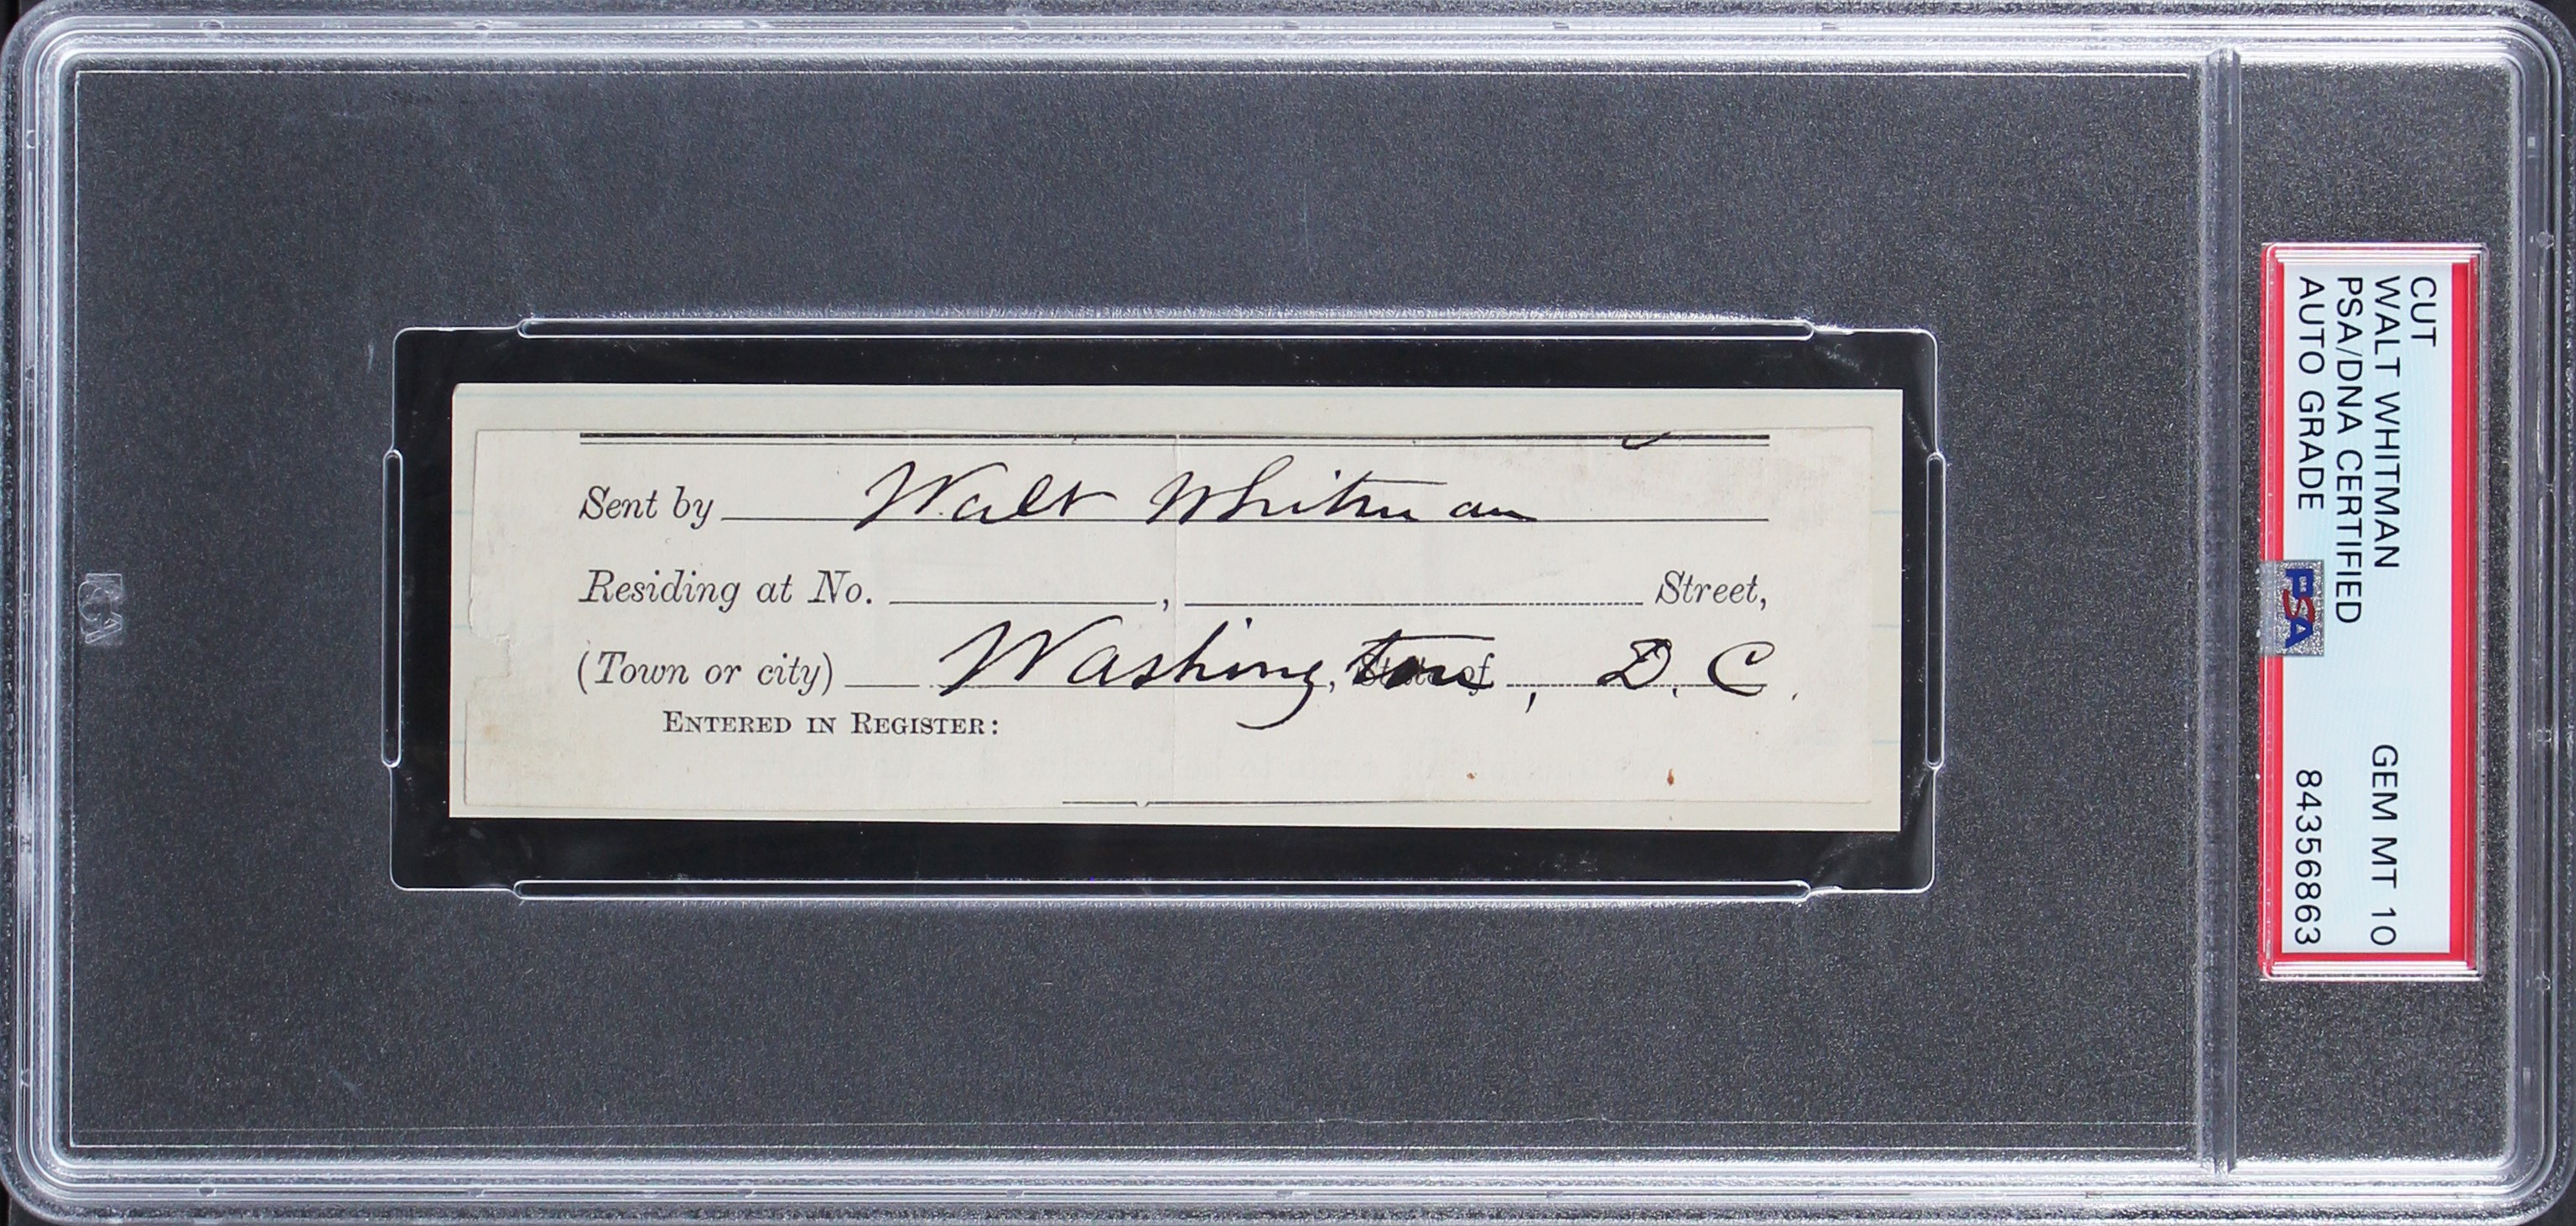 Sent by Walt Whitman
Residing at No. , Street,
(Town or city) Washington, State of , D.C.
ENTERED IN REGISTER:
CUT
WALT WHITMAN GEM MT 10
PSA/DNA CERTIFIED
AUTO GRADE 84356863
PSA